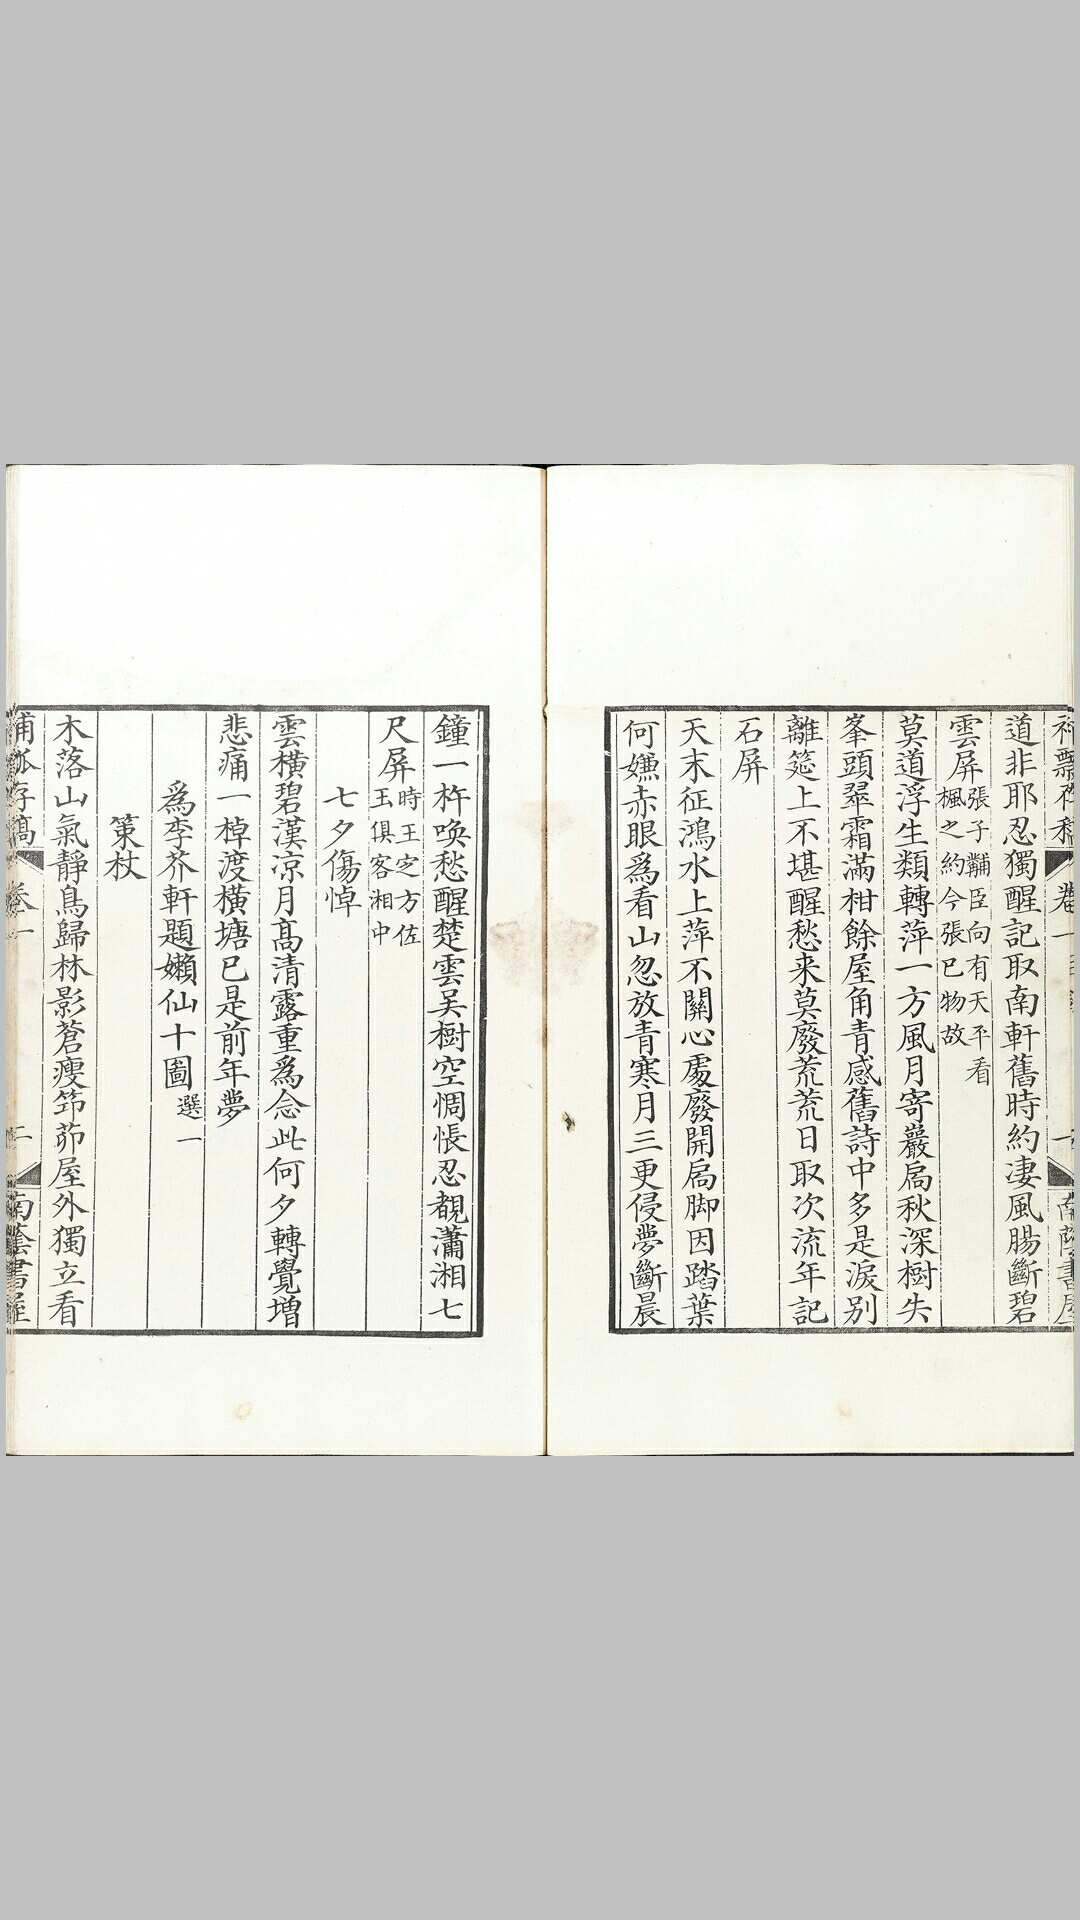 道非耶忍獨醒記取南軒舊時約淒風腸斷碧
雲屏張子黼臣向有天平看
楓之約今張已物故
莫道浮生類轉萍一方風月寄巖扃秋深樹失
峯頭翠霜滿柑餘屋角青感舊詩中多是淚別
離筵上不堪醒愁来莫廢荒荒日取次流年記
石屏
天末征鴻水上萍不關心處廢開扃脚因踏葉
何嫌赤眼爲看山忽放青寒月三更侵夢斷晨
鐘一杵喚愁醒楚雲吴樹空惆悵忍覩瀟湘七
尺屏時王定方佐
玉俱客湘中
七夕傷悼
雲橫碧漢凉月髙清露重爲念此何夕轉覺增
悲痛一棹渡橫塘已是前年夢
爲李芥軒題嬾仙十圖選一
策杖
木落山氣靜鳥歸林影蒼瘦筇茆屋外獨立看
蒲孤存稿 卷一 二 南蔭書屋